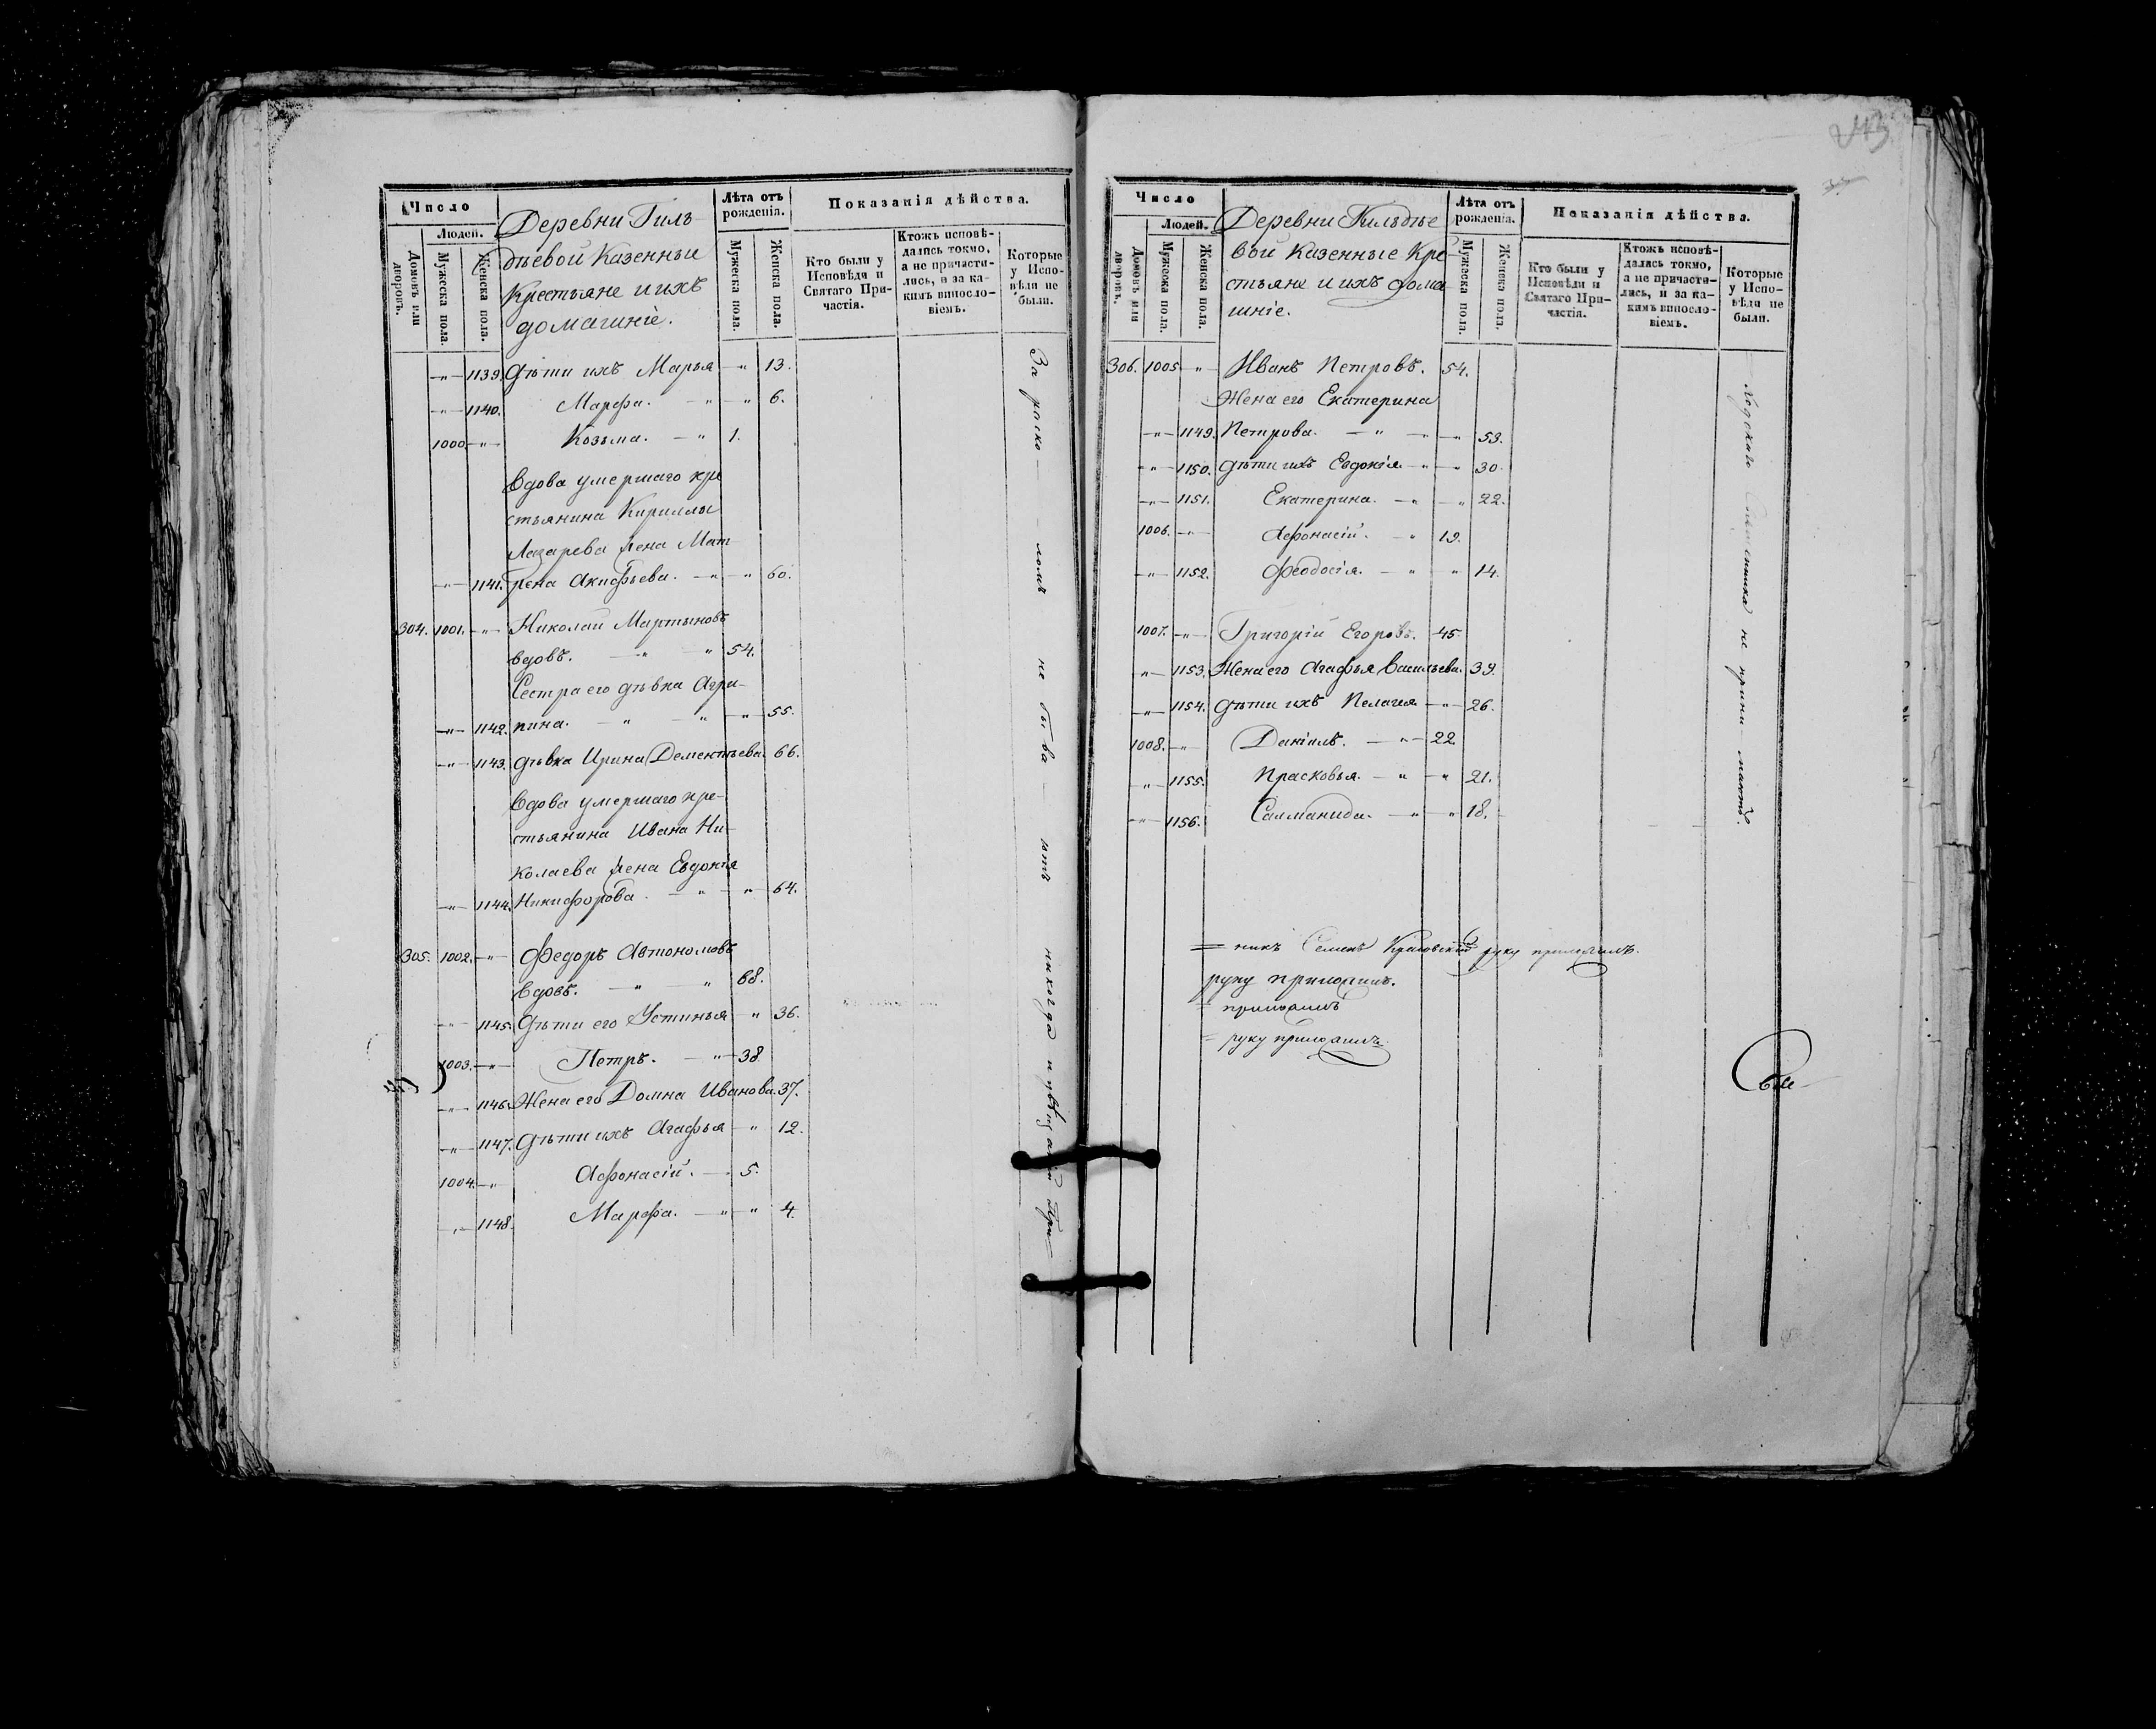 Число
Людей.
Домовъ или дворовъ.
Мужеска пола.
Женска пола.
Деревни Гиль-
дѣевой Казенныи
Крестьяне и ихъ
домашніе.
Лѣта отъ рожденія.
Мужеска пола.
Женска пола.
Показанія дѣйства.
Кто были у Исповѣди и Святаго Причастія.
Ктожъ исповѣ-
дались токмо,
а не причасти-
лись, и за ка-
кимъ винослo-
віемъ.
Которые
у Испо-
вѣди не
были.
-"- 1139. Дѣти ихъ Марья -"- 13.
-"- 1140. Марфа. -"- " 6.
1000. -"- Козьма. -"- 1.
Вдова умершаго кре
стьянина Кириллы
Лазарева жена Мат
-"- 1141. рена Акифьева. -"- " 60.
304. 1001. -"- Николай Мартыновъ
вдовъ. -"- " 54.
Сестра его дѣвка Агри-
-"- 1142. пина. -"- " -"- 55.
-"- 1143. Дѣвка Ирина Дементьева. 66.
Вдова умершаго кре-
стьянина Ивана Ни-
колаева жена Евдокія
-"- 1144. Никифорова. -"- " 64.
305. 1002. -"- Федоръ Автономовъ
вдовъ. -"- " 68.
-"- 1145. Дѣти его Устинья -"- 36.
1003. -"- Петръ. -"- 38
-"- 1146. Жена его Домна Иванова. 37.
-"- 1147. Дѣти ихъ Агафья -"- 12.
1004. -"- Афонасій. - 5.
-"- 1148. Марфа. -"- " 4.
За раско- ломъ не быва- ютъ никогда и
243
Число
Людей.
Домовъ или дворовъ.
Мужеска пола.
Женска пола.
Деревни Гильдѣе
вой Казенные Кре-
стьяне и ихъ дома
шніе.
Лѣта отъ рожденія.
Мужеска пола.
Женска пола.
Показанія дѣйства.
Кто были у
Исповѣди и
Святаго При-
частія.
Ктожъ исповѣ-
дались токмо,
а не причасти-
лись, и за ка-
кимъ винослo-
віемъ.
Которые
у Испо-
вѣди не
были.
306. 1005 -"- Иванъ Петровъ. 54.
Жена его Екатерина
-"- 1149. Петрова. -"- -"- 53.
-"- 1150. Дѣти ихъ Евдокія -"- " 30.
-"- 1151. Екатерина. -"- " 22.
1006. -"- Афонасій. -"- 19.
-"- 1152. Феодосія. -"- " 14.
1007. -"- Григорій Егоровъ. 45
" 1153. Жена его Агафья Васильева. 39.
-"- 1154. Дѣти ихъ Пелагея -"- 26.
1008. -"- Даніилъ. -"- 22
-"- 1155. Прасковья. -"- " 21.
-"- 1156. Саломанида. -"- " 18.
не прини- маютъ.
= никъ Семенъ руку приложилъ.
руку приложилъ.
= приложилъ
= руку приложилъ.